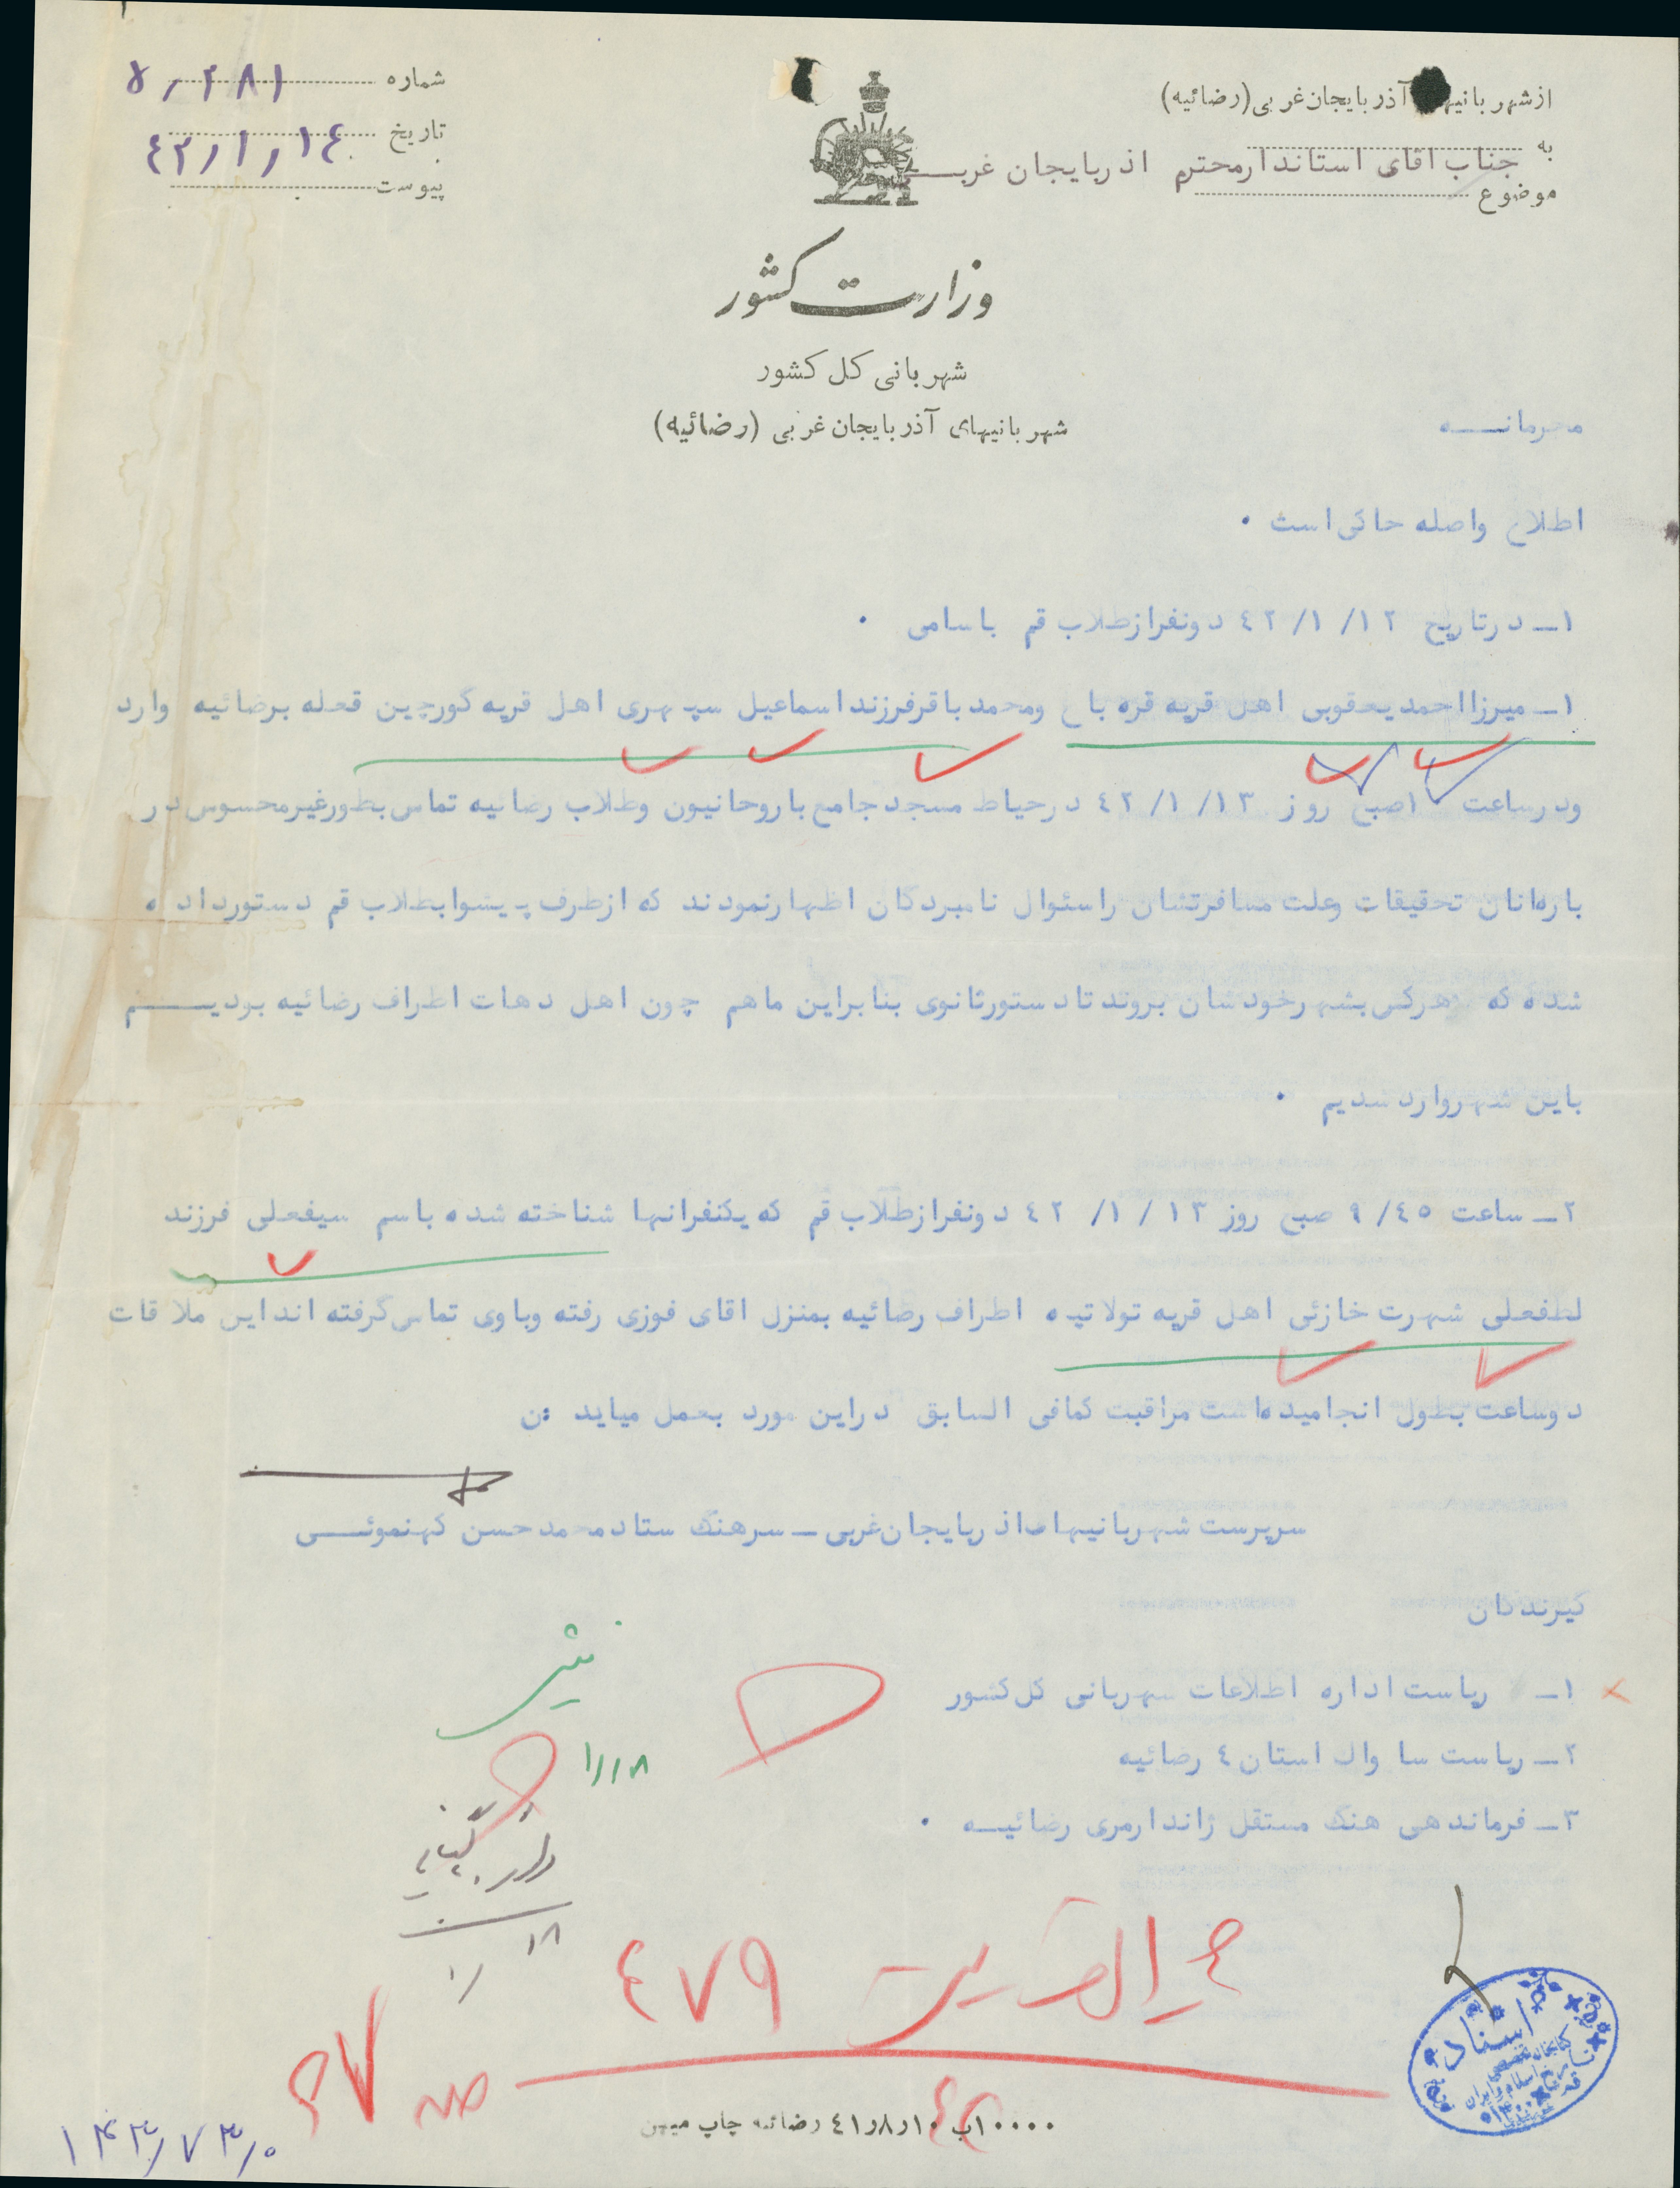 از شهربانیهای آذربایجان غربی (رضائیه)
به جناب اقای استاندار محترم اذربایجان غربی
موضوع
شماره ۵ر۲۸۱
تاریخ ۴۲ر۱ر۱۴
پیوست
وزارت کشور
شهربانی کل کشور
شهربانیهای آذربایجان غربی (رضائیه)
محرمانه
اطلاع واصله حاکی است ۰
۱ــ درتاریخ ۴۲/۱/۱۲ دونفرازطلاب قم باسامی ۰
۱ــ میرزااحمدیعقوبی اهل قریه قره باغ ومحمدباقرفرزنداسماعیل سپهری اهل قریه گورچین قحله برضائیه وارد
ودرساعت ۱۰صبح روز ۴۲/۱/۱۳ درحیاط مسجدجامع باروحانیون وطلاب رضائیه تماس بطورغیرمحسوس در
باره‌انان تحقیقات وعلت مسافرتشان راسئوال نامبردگان اظهارنمودند که ازطرف پیشوابطلاب قم دستورداده
شده که هرکس بشهرخودشان بروندتادستورثانوی بنابراین ماهم چون اهل دهات اطراف رضائیه بودیم
باین شهرواردشدیم ۰
۲ــ ساعت ۹/۴۵ صبح روز ۴۲/۱/۱۳ دونفرازطلاب قم که یکنفرانها شناخته شده باسم سیفعلی فرزند
لطفعلی شهرت خازئی اهل قریه تولاتپه اطراف رضائیه بمنزل اقای فوزی رفته وباوی تماس گرفته انداین ملاقات
دوساعت بطول انجامیده‌است مراقبت کمافی السابق دراین مورد بعمل میاید :ن
سرپرست شهربانیهای اذربایجان‌غربی ــ سرهنگ ستادمحمدحسن کهنموئی
گیرندگان
۱ــ ریاست اداره اطلاعات شهربانی کل کشور
۲ــ ریاست ساواک استان ۴ رضائیه
۳ــ فرماندهی هنگ مستقل ژاندارمری رضائیه ۰
۱ر۱۸
۱۸
۱ر
۴۷۹
۴۲
۱۰۰۰۰ب ۱۰ر۸ر۴۱ رضائیه چاپ میهن
۱۴۳ر۷۳ر۰
اسناد
کتابخانه تخصصی
تاریخ اسلام و ایران
قم